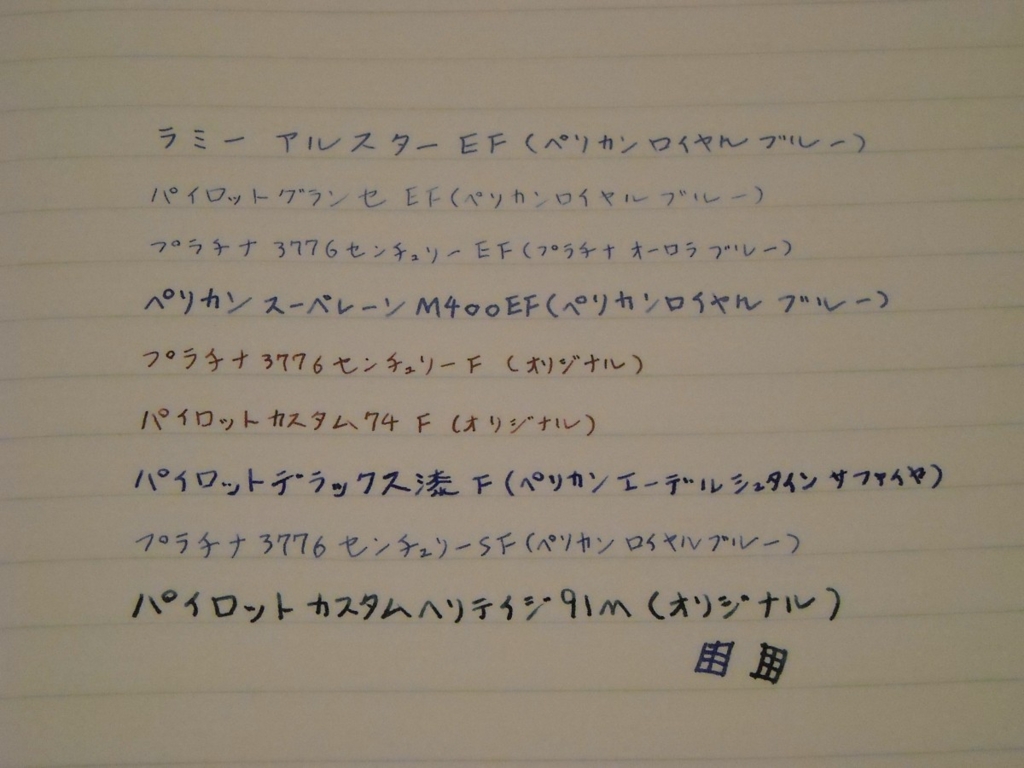 ラミー アルスターEF(ペリカンロイヤルブルー)
パイロットグランセ EF(ペリカンロイヤルブルー)
プラチナ 3776センチュリーEF(プラチナ オーロラブルー)
ペリカン スーベレーンM400EF(ペリカンロイヤル ブルー)
プラチナ3776センチュリーF (オリジナル)
パイロットカスタム74 F (オリジナル)
パイロットデラックス漆 F(ペリカン エーデルシュタイン サファイヤ)
プラチナ3776センチュリーSF(ペリカンロイヤルブルー)
パイロットカスタムヘリテイジ91M(オリジナル)